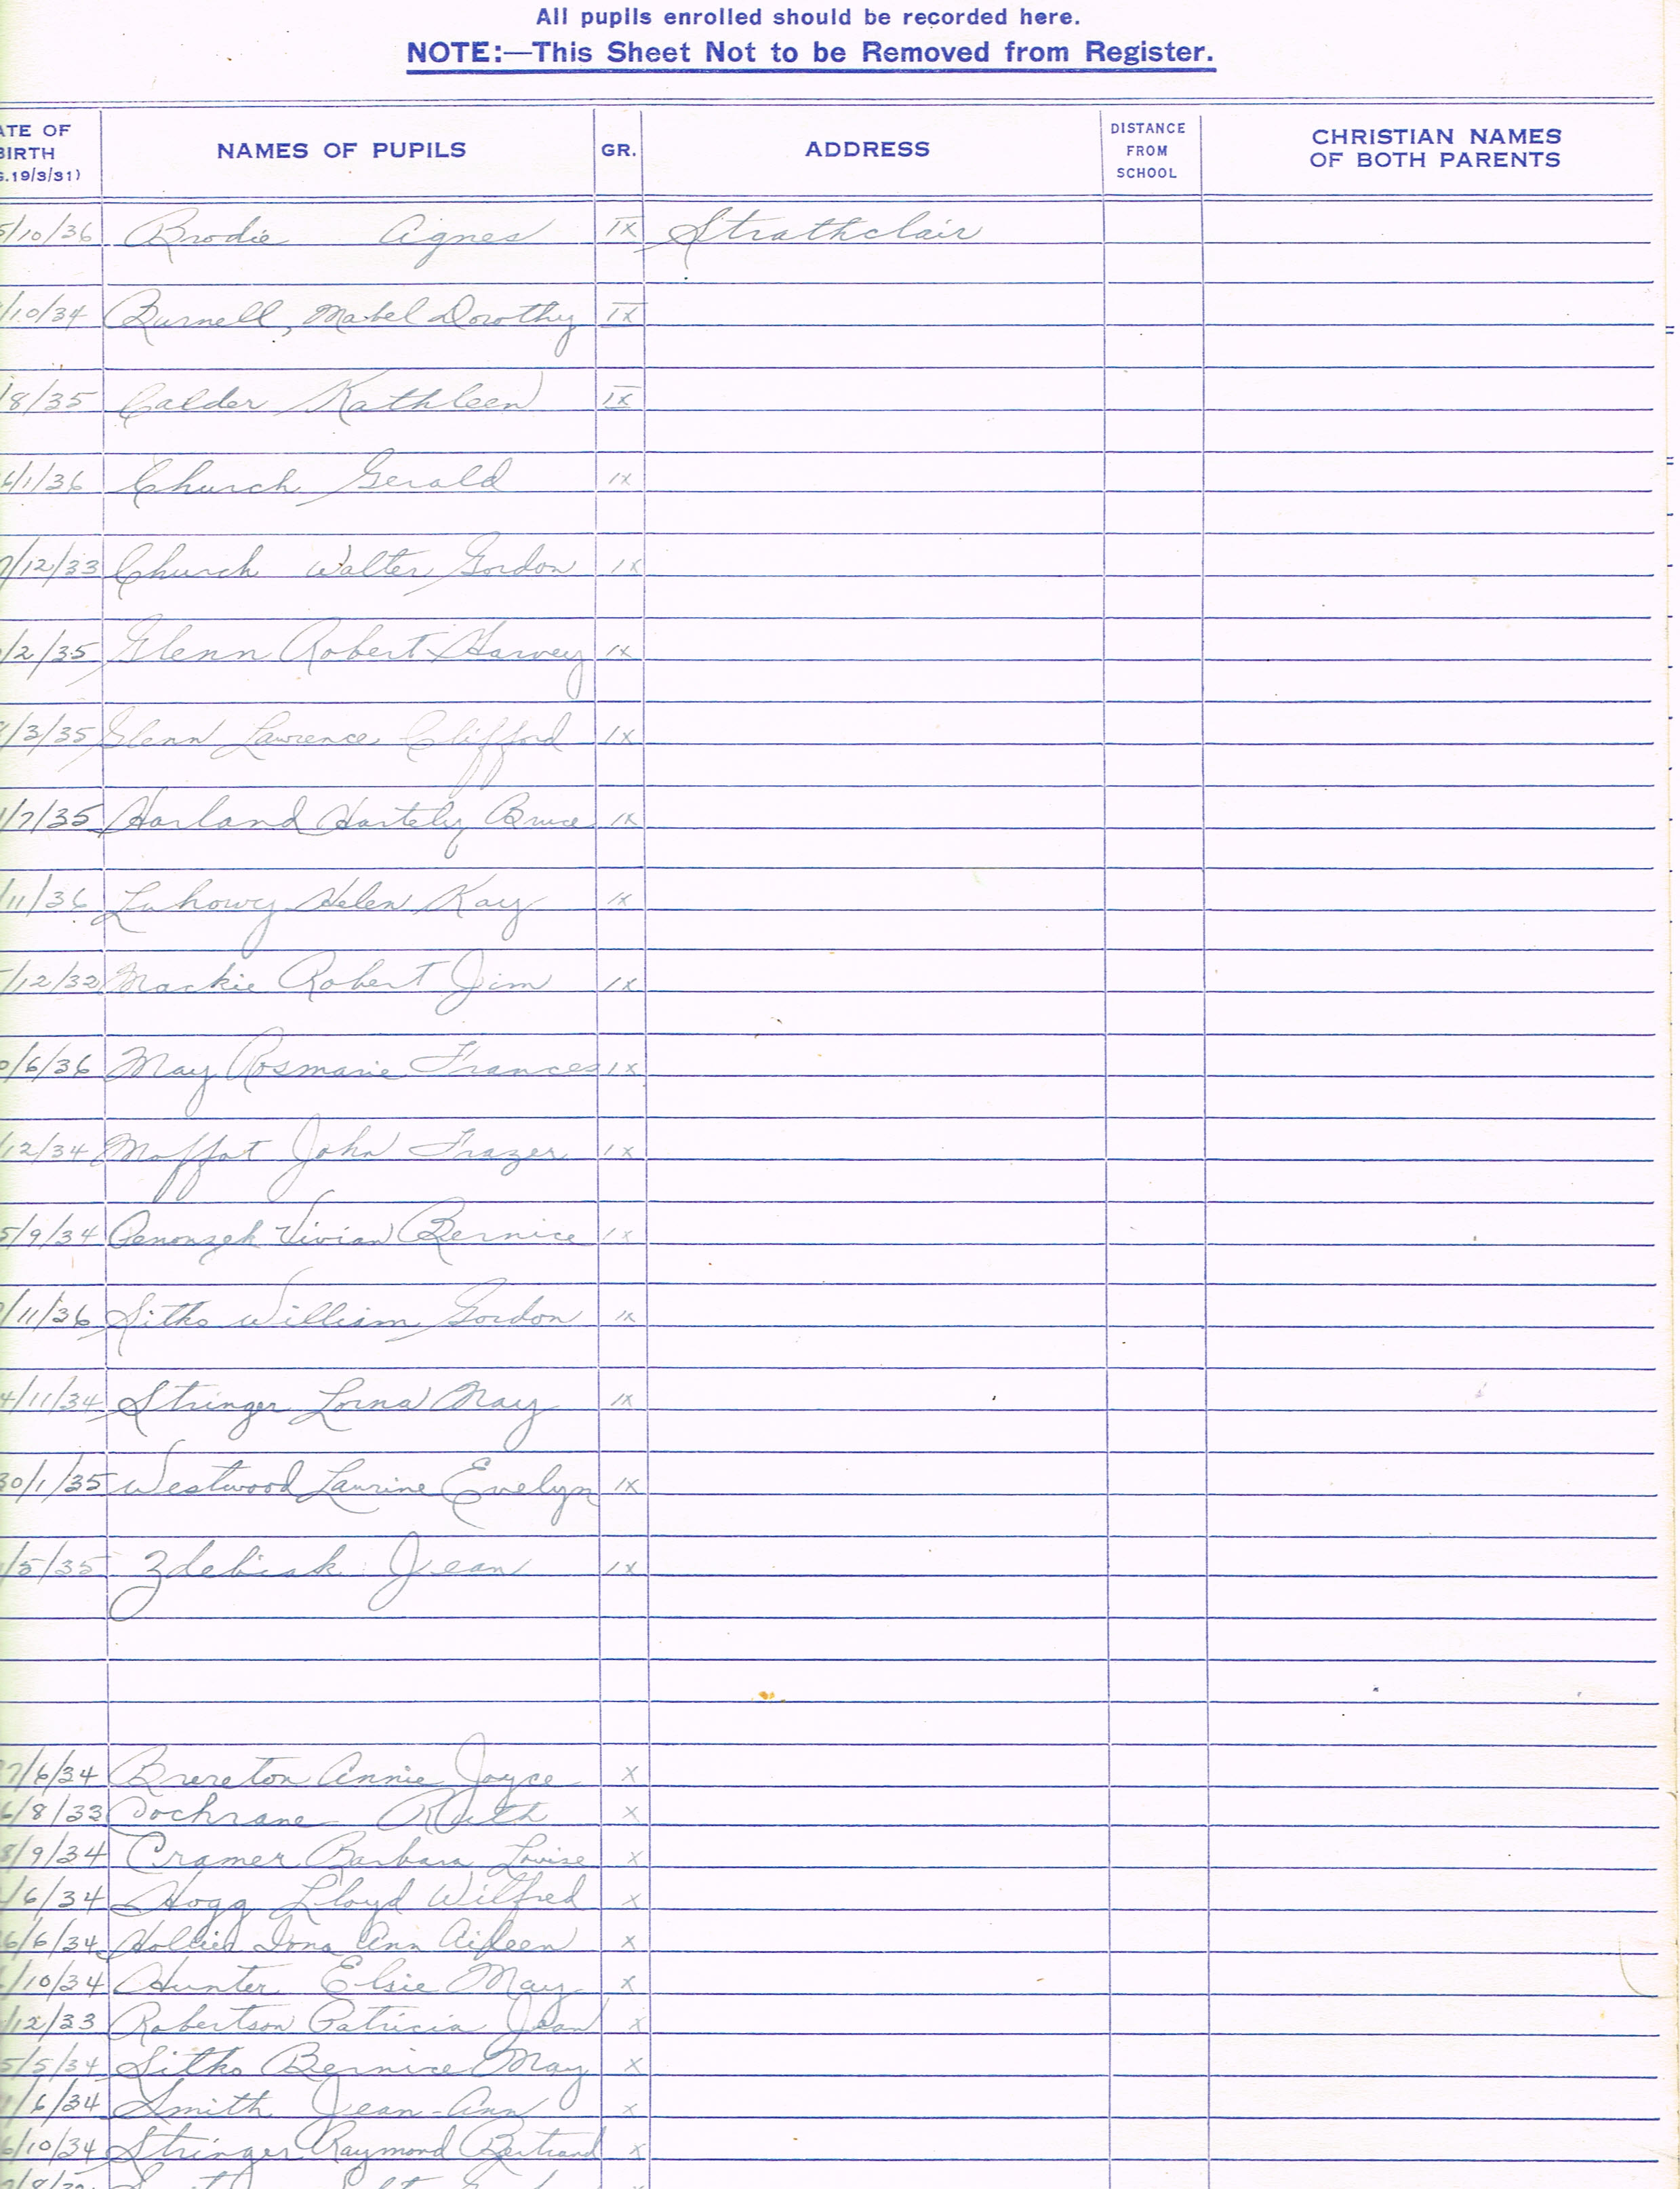 All pupils enrolled should be recorded here.
NOTE:—This Sheet Not to be Removed from Register.
ATE OF BIRTH 19/3/31) NAMES OF PUPILS GR. ADDRESS DISTANCE FROM SCHOOL CHRISTIAN NAMES OF BOTH PARENTS
/10/36 Brodie Agnes IX Strathclair
/10/34 Burnell, Mabel Dorothy IX
/8/35 Calder Kathleen IX
/1/36 Church Gerald IX
/12/33 Church Walter Gordon IX
/2/35 Glenn Robert Harvey IX
/3/35 Glenn Lawrence Clifford IX
/7/35 Harland Hartely Bruce IX
/11/36 Luhowy Helen Kay IX
/12/32 Mackie Robert Jim IX
/6/36 May Rosmarie Frances IX
/12/34 Moffat John Frazer IX
5/9/34 Vivian Bernice IX
/11/36 Sitko William Gordon IX
4/11/34 Stringer Lorna May IX
30/1/35 Westwood Laurine Evelyn IX
/5/35 Zdebiak Jean IX
7/6/34 Brereton Annie Joyce X
6/8/33 Cochrane Ruth X
8/9/34 Cramer Barbara Louise X
/6/34 Hogg Lloyd Wilfred X
6/6/34 Iona Ann Aileen X
/10/34 Hunter Elsie May X
/12/33 Robertson Patricia Jean X
5/5/34 Sitko Bernice May X
/6/34 Smith Jean-Ann X
/10/34 Stringer Raymond Bertrand X